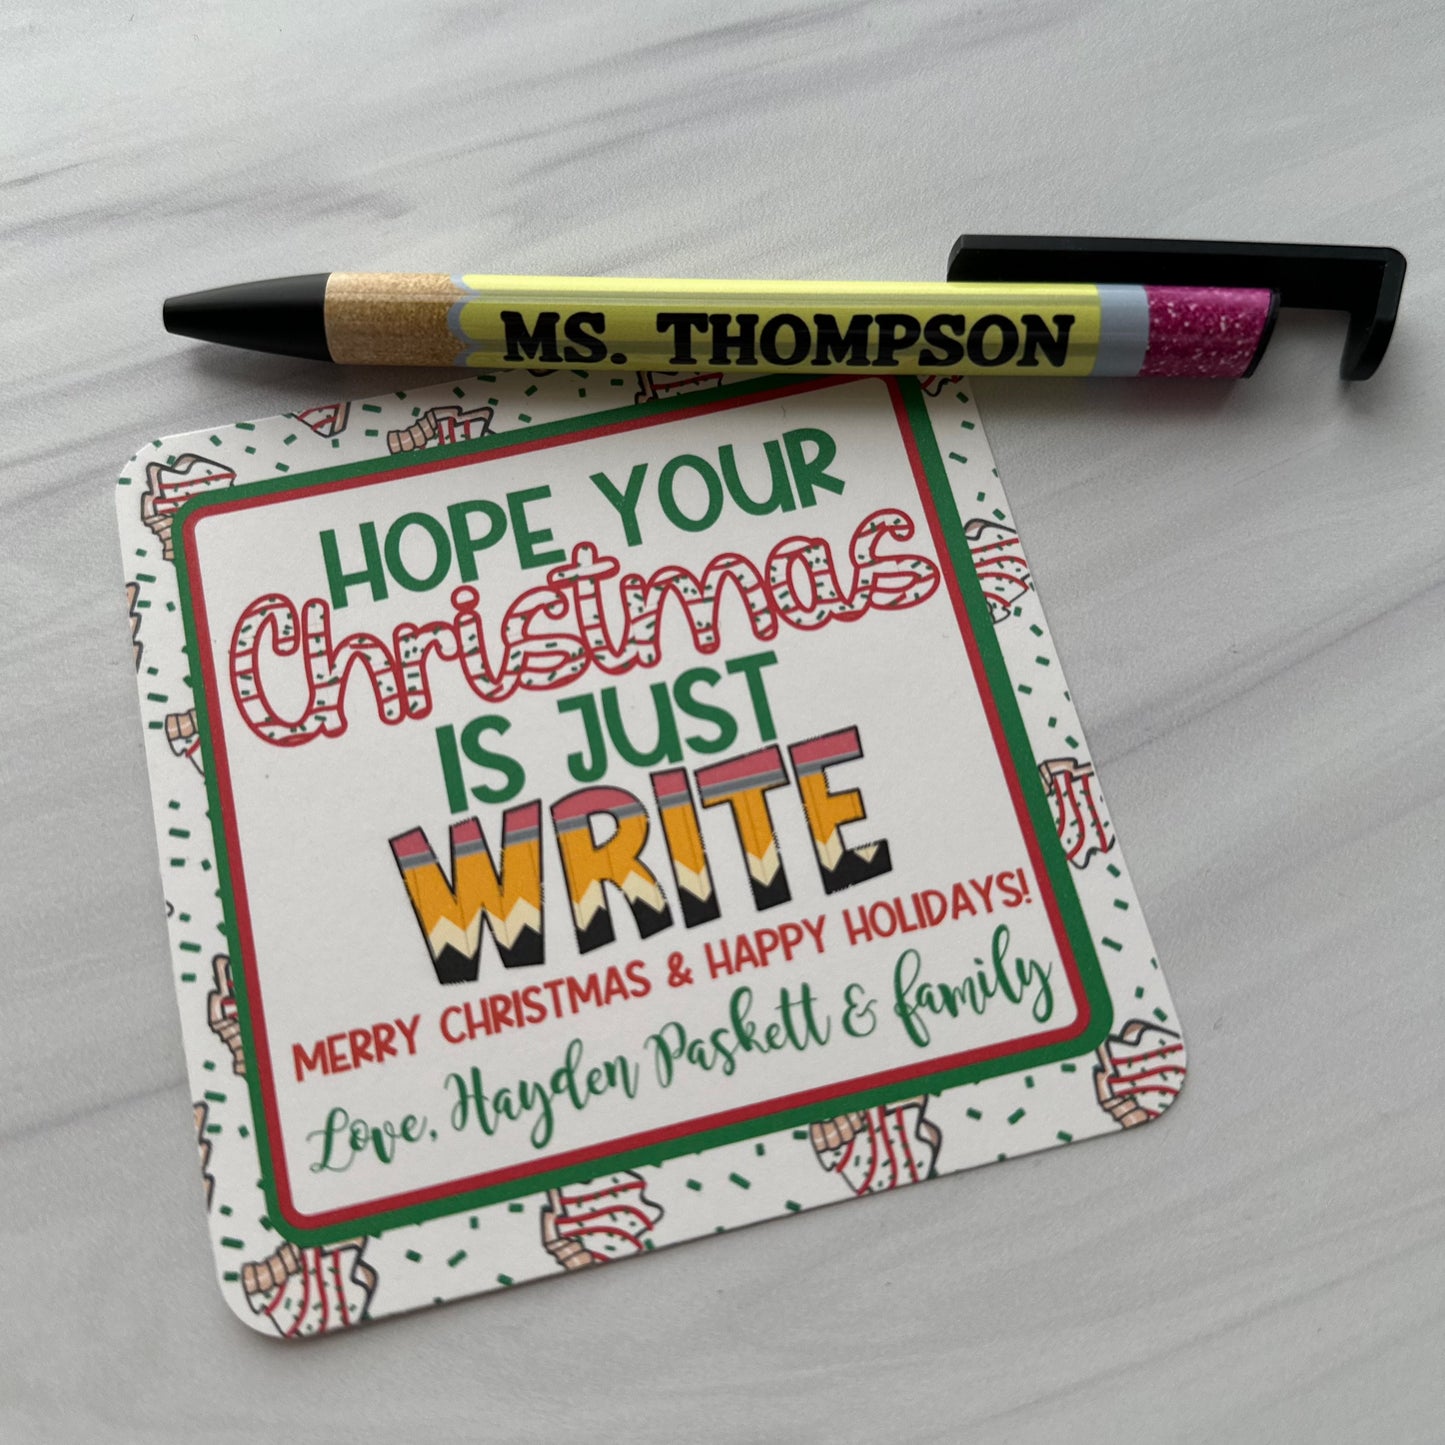 MS. THOMPSON
HOPE YOUR
Christmas
IS JUST
WRITE
MERRY CHRISTMAS & HAPPY HOLIDAYS!
Love, Hayden Paskett & family